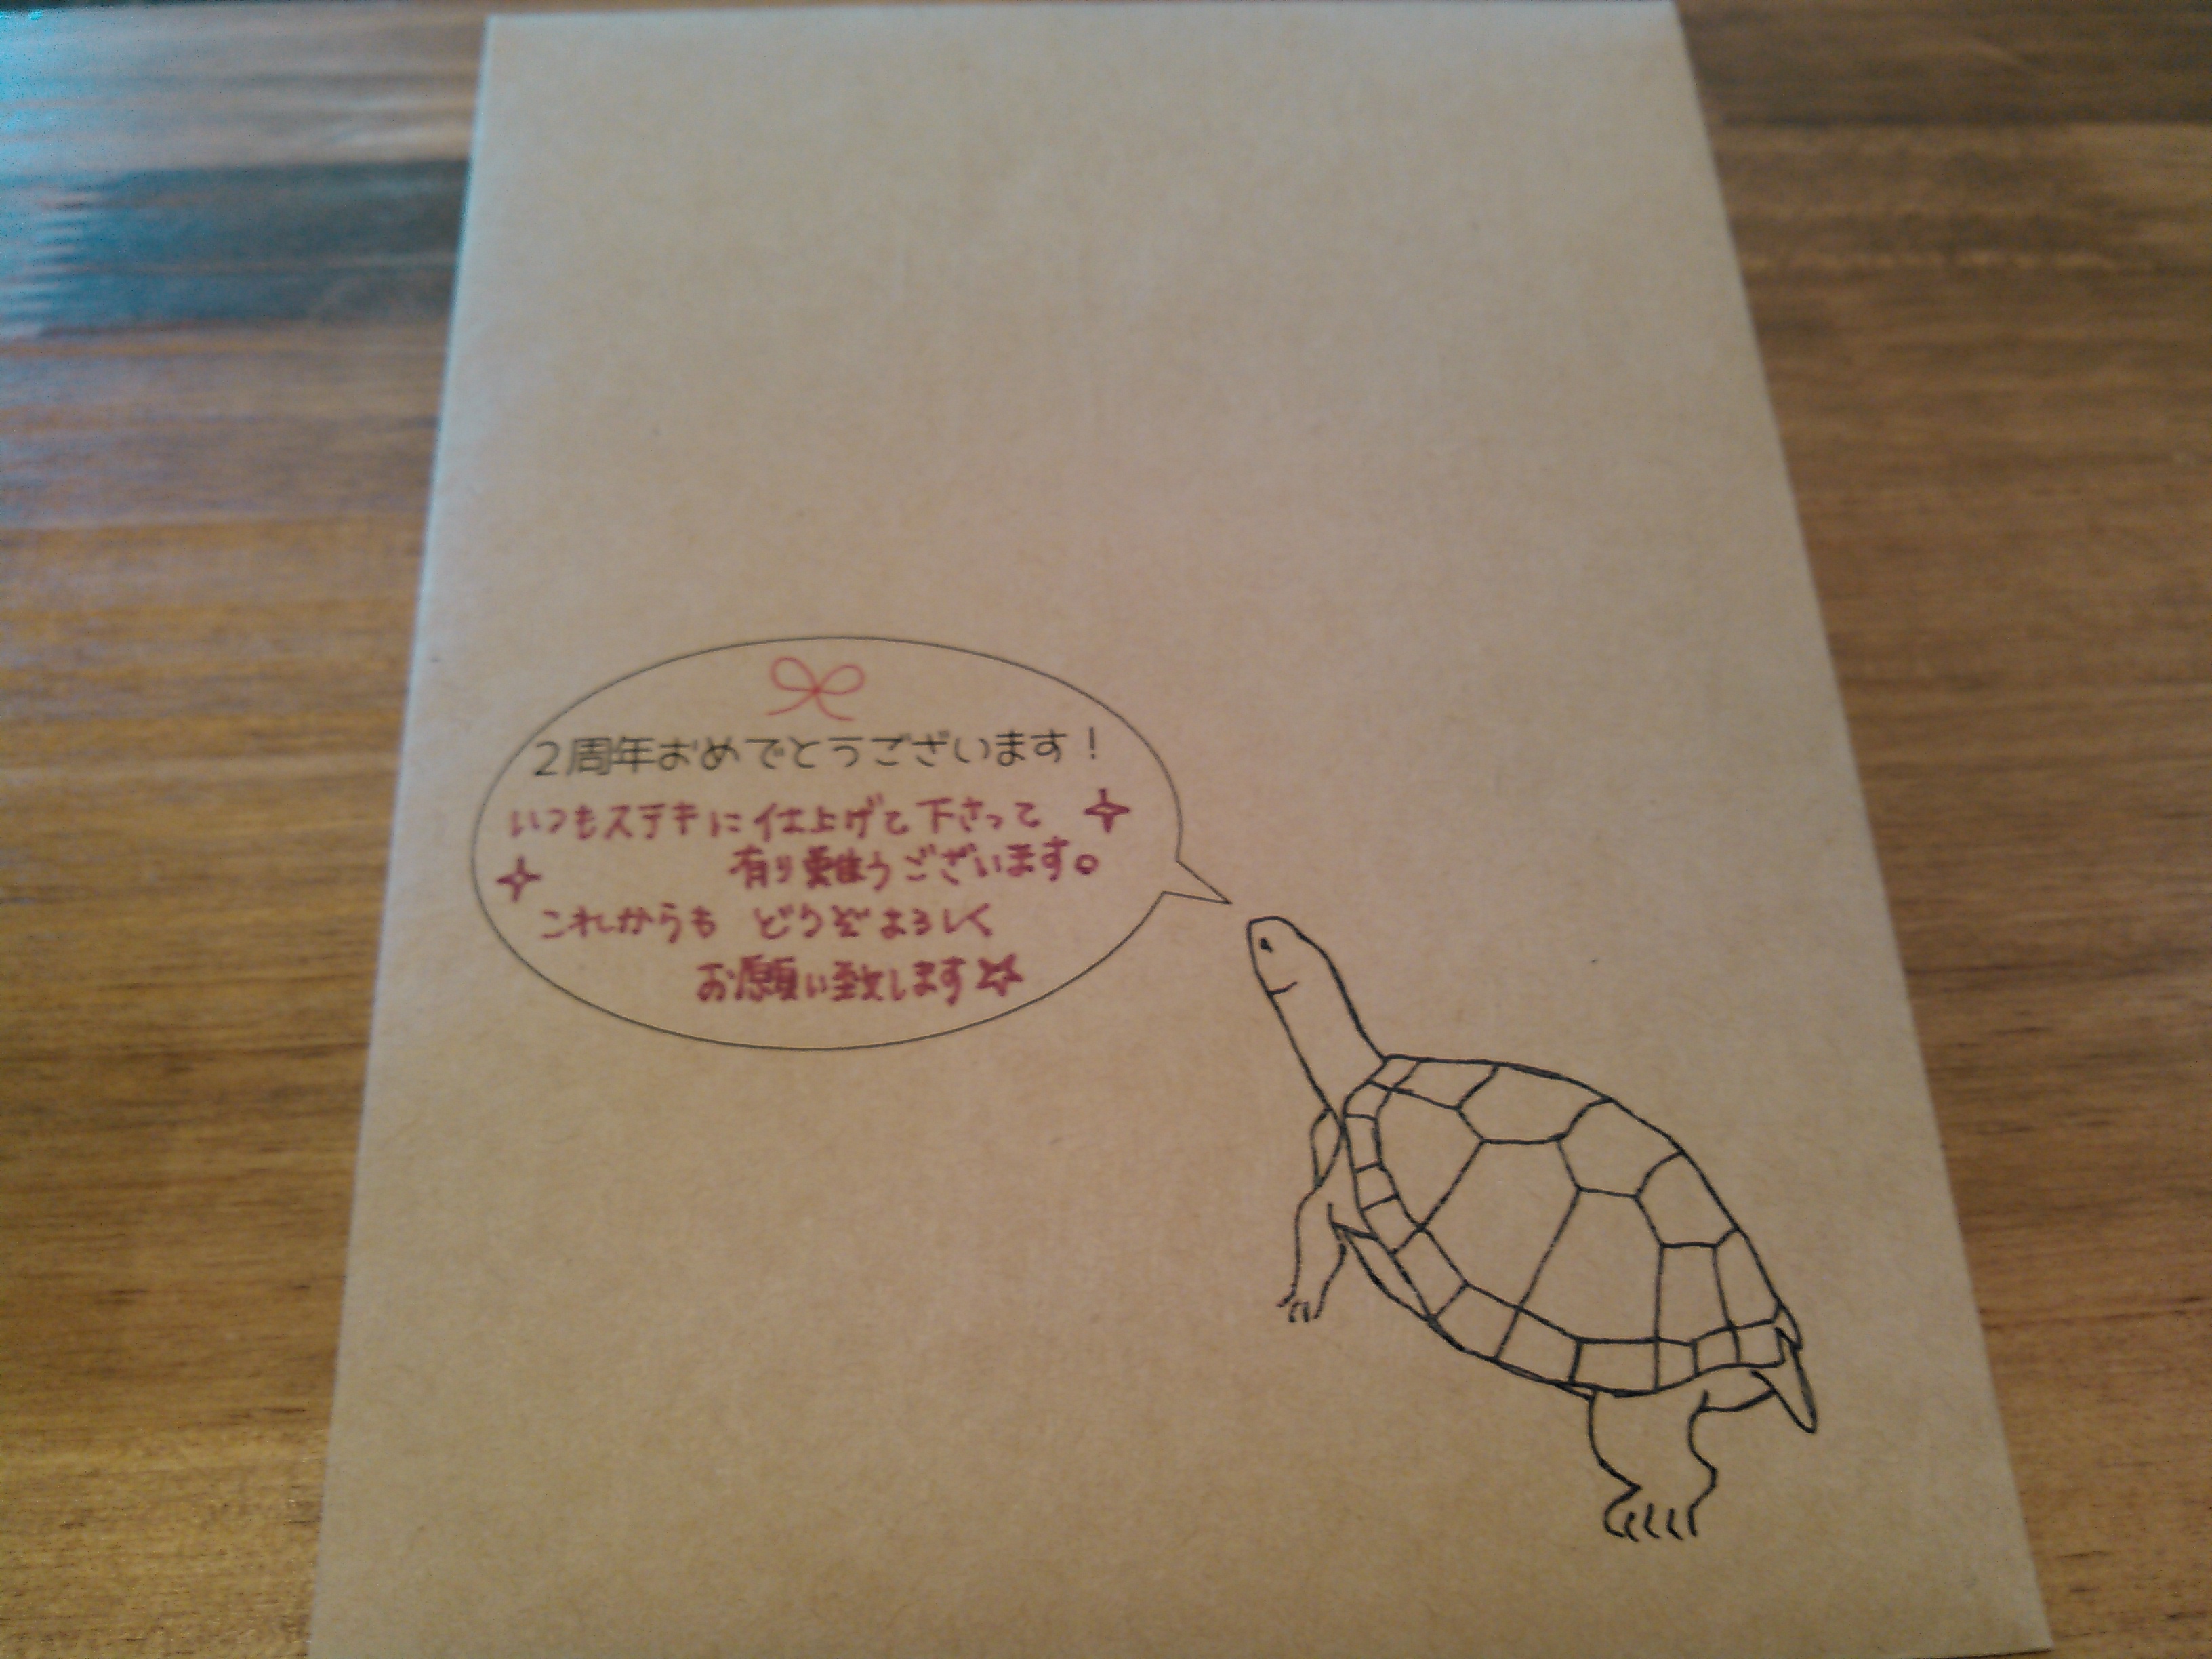 ２周年おめでとうございます！
いつもステキに仕上げて下さって
有り難うございます。
これからも どうぞよろしく
お願い致します☆